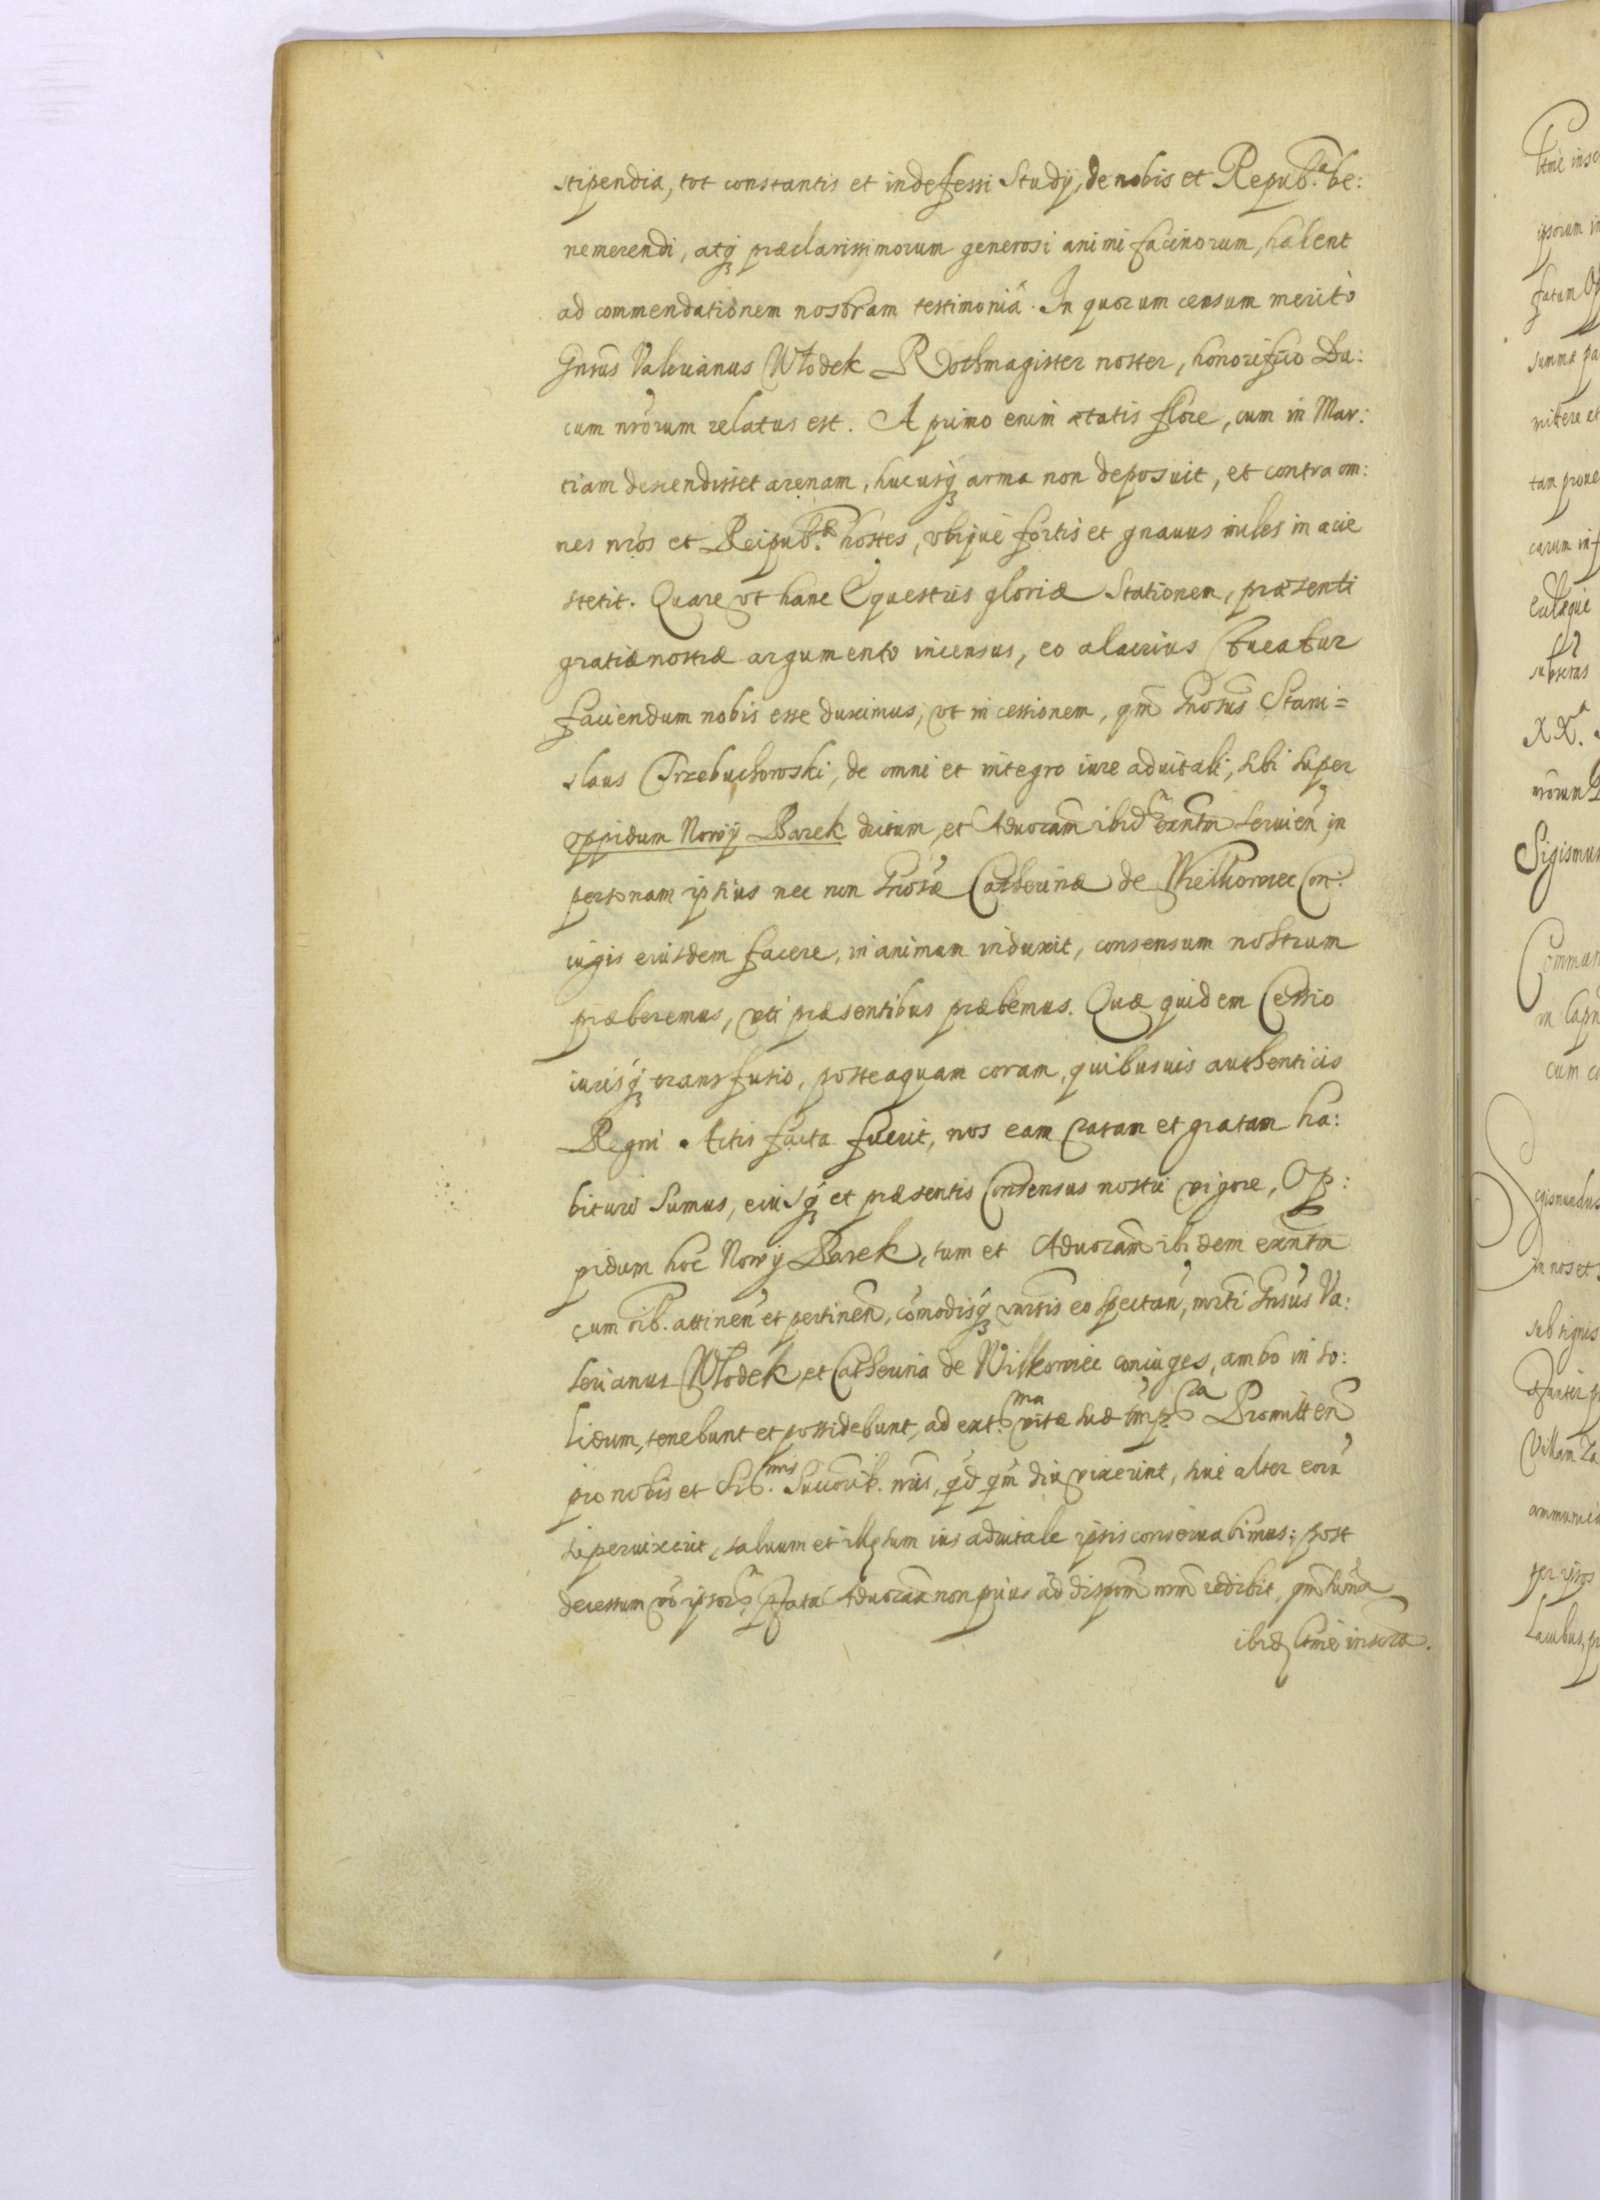 stipendia, tot constantis et indefessi Studij, de nobis et Repub.ᵃ be:
nemerendi, atq̃ꝫ præclarissimorum generosi animi facinorum, habent
ad commendationem nostram testimonia. In quorum censum merito
Gnsus Valerianus Włodek Rothmagister noster, honorifico Du:
cum nrõrum relatus est. A primo enim ætatis flore, cum in Mar:
tiam descendisset arenam, hucusq̃ꝫ arma non deposuit, et contra om:
nes nrõs et Reipub.ᵃᵉ hostes, vbique fortis et gnauus miles in acie
stetit. Quare vt hanc Equestris gloriæ Stationem, præsenti
gratiæ nostræ argumento incensus, eo alacrius tueatur
faciendum nobis esse duximus, vt in cessionem, qm̃ Gnosus Stani=
slaus Trzebuchowski, de omni et integro iure aduitali, sibi super
oppidum Nowÿ Barek dictum, et Aduocam̃ ibid exñtm seruien̄ in
personam ipsius nec non Gnosæ Catherinæ de Wielkowiec Con:
iugis eiusdem facere, in animum induxit, consensum nostrum
præberemus, vti præsentibus præbemus. Quæ quidem Cessio
iurisq̃ꝫ transfusio, posteaquam coram, quibusuis authenticis
Regni Actis facta fuerit, nos eam ratam et gratam ha:
bituri sumus, eiusq̃ꝫ et præsentis Consensus nostri vigore, Op:
pidum hoc Nowÿ Barek, tum et Aduocam̃ ibidem exñtm
cum oĩb. attinen̄ et pertinen̄, com̃odisq̃ꝫ vnĩrsis eo spectan̄, mrti Gnsus Va:
lerianus Włodek, et Catherina de Wilkowiec coniuges, ambo in so:
lidum, tenebunt et possidebunt, ad ext.ᵐᵃ vitæ suæ tmp.ᵃ Promitten̄
pro nobis et Sr.ᵐⁱˢ Succorib. nris, qd qm̃ diu vixerint, siue alter eorũ
superuixerit, saluum et illæsum ius aduitale ipsis conseruabimus; post
decessum võ ipsor. Pfata Aduocãa non prius ad dispom̃ nrm̃ redibit, qm̃ sum̃a
ibid̃ ltmẽ inscrta.